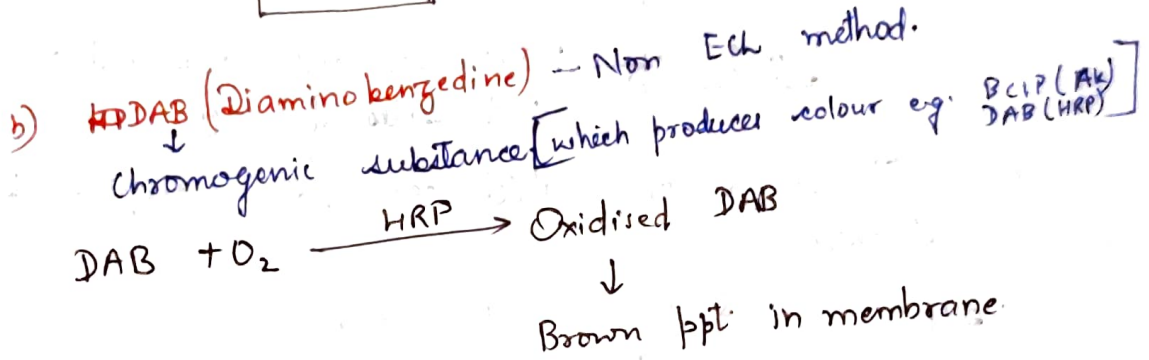 b) DAB (Diaminobenzedine) - Non ECL method.
↓
Chromogenic substance [which produces colour eg. BCIP (AK) DAB (HRP)]
DAB + O₂ —HRP→ Oxidised DAB
↓
Brown ppt. in membrane.